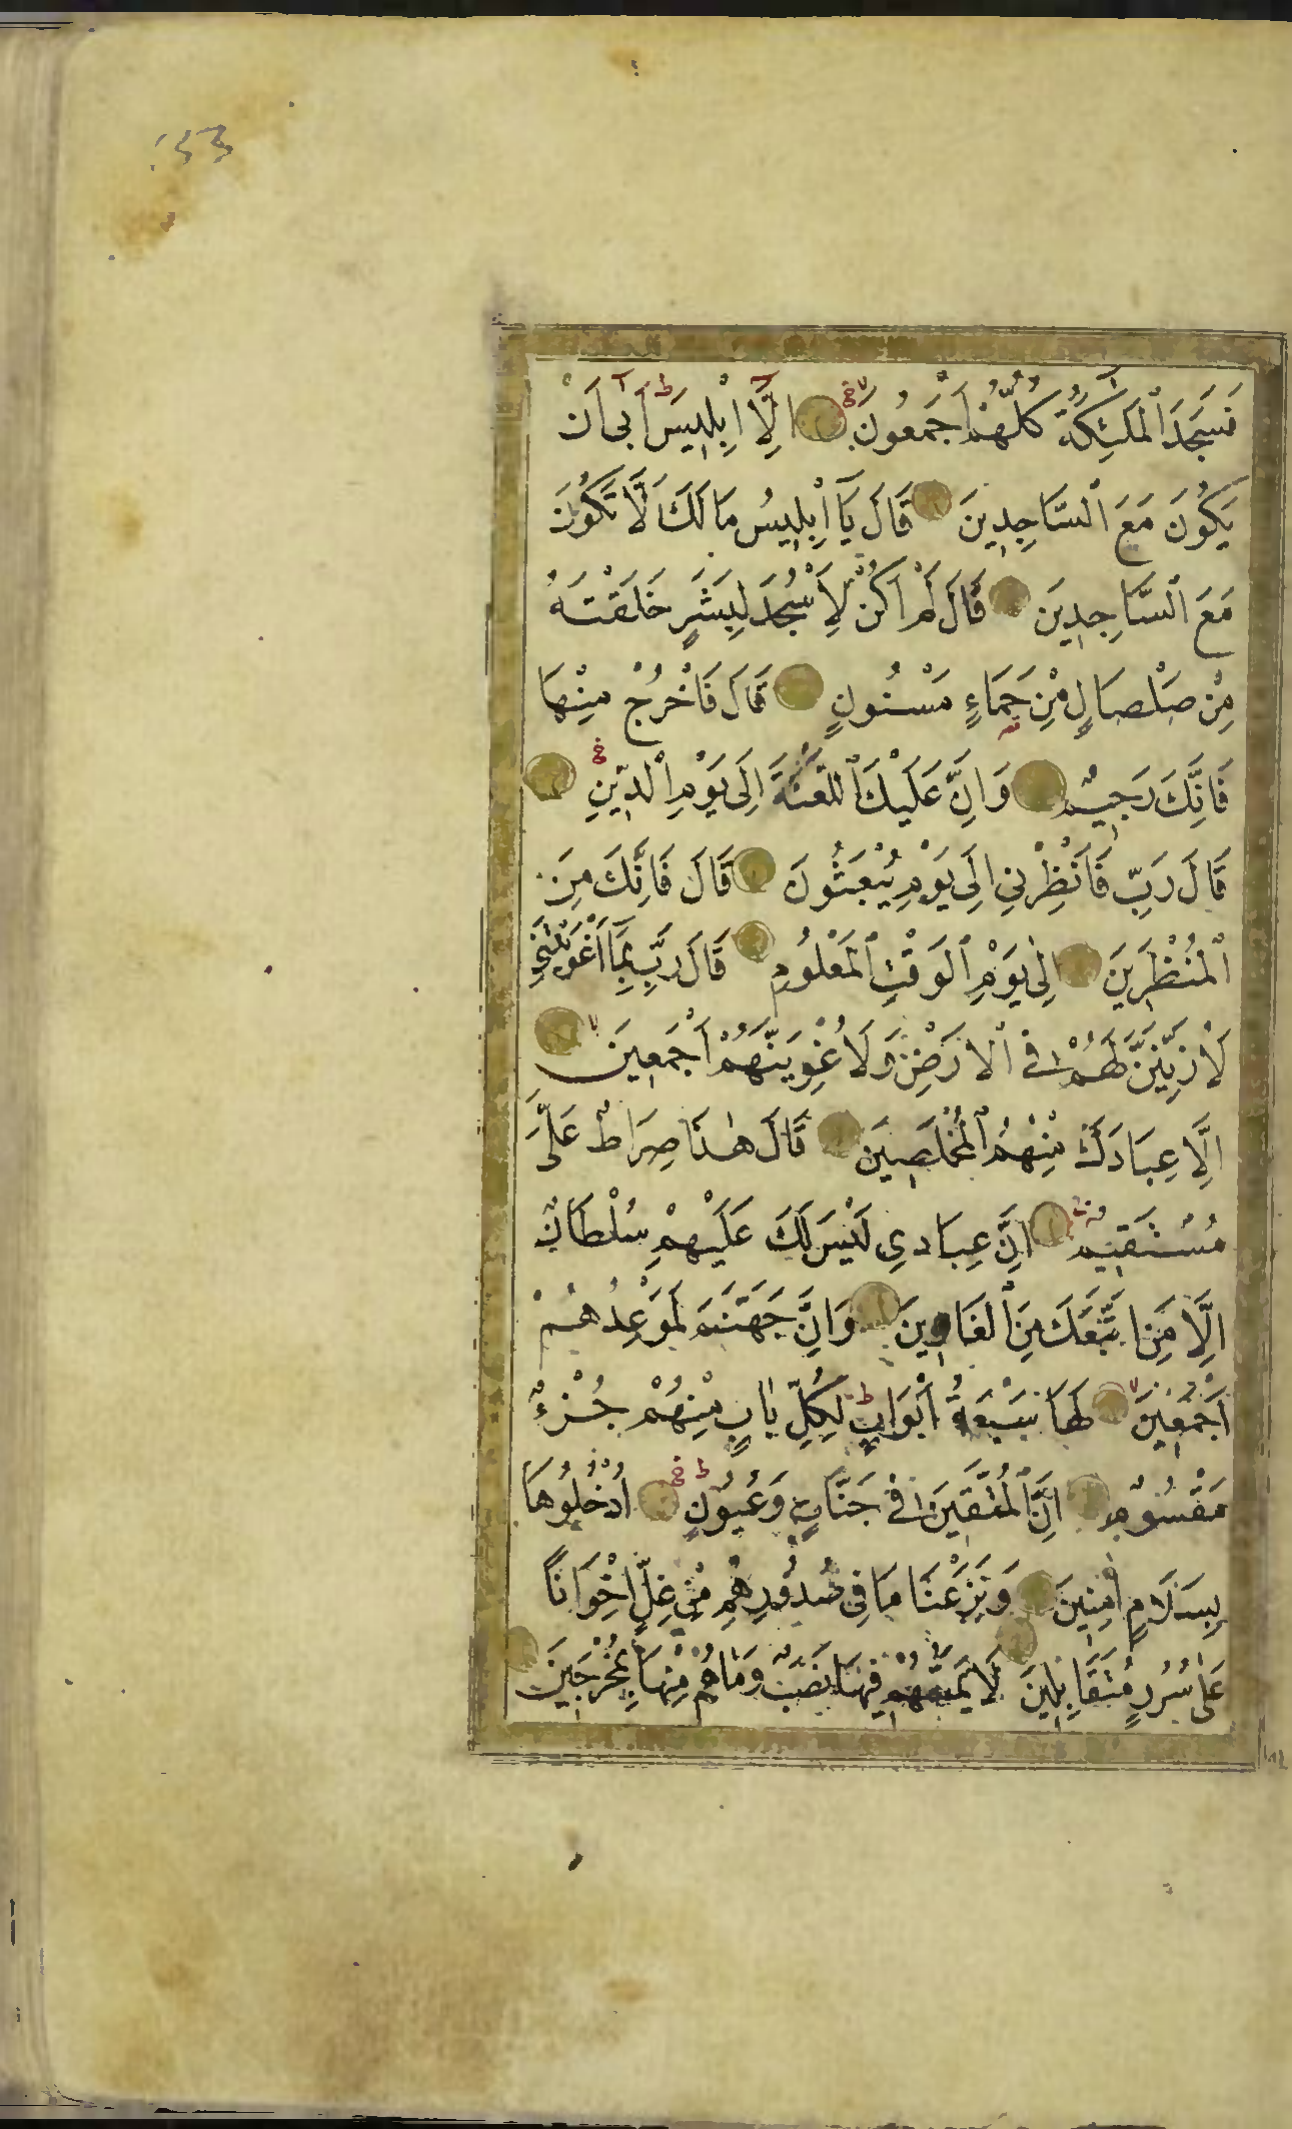 فَسَجَدَ ٱلْمَلٰٓئِكَةُ كُلُّهُمْ اَجْمَعُونَ اِلَّٓا اِبْلِيسَ اَبٰٓى اَنْ
يَكُونَ مَعَ ٱلسَّاجِدِينَ قَالَ يَٓا اِبْلِيسُ مَا لَكَ اَلَّا تَكُونَ
مَعَ ٱلسَّاجِدِينَ قَالَ لَمْ اَكُنْ لِاَسْجُدَ لِبَشَرٍ خَلَقْتَهُ
مِنْ صَلْصَالٍ مِنْ حَمَاءٍ مَسْنُونٍ قَالَ فَاخْرُجْ مِنْهَا
فَاِنَّكَ رَجِيمٌ وَاِنَّ عَلَيْكَ ٱللَّعْنَةَ اِلَى يَوْمِ ٱلدِّينِ
قَالَ رَبِّ فَاَنْظِرْنِي اِلَى يَوْمِ يُبْعَثُونَ قَالَ فَاِنَّكَ مِنَ
ٱلْمُنْظَرِينَ اِلٰى يَوْمِ ٱلْوَقْتِ ٱلْمَعْلُومِ قَالَ رَبِّ بِمَٓا اَغْوَيْتَنِي
لَاُزَيِّنَنَّ لَهُمْ فِي ٱلْاَرْضِ وَلَاُغْوِيَنَّهُمْ اَجْمَعِينَ
اِلَّا عِبَادَكَ مِنْهُمُ ٱلْمُخْلَصِينَ قَالَ هٰذَا صِرَاطٌ عَلَىَّ
مُسْتَقِيمٌ اِنَّ عِبَادِي لَيْسَ لَكَ عَلَيْهِمْ سُلْطَانٌ
اِلَّا مَنِ اتَّبَعَكَ مِنَ ٱلْغَاوِينَ وَاِنَّ جَهَنَّمَ لَمَوْعِدُهُمْ
اَجْمَعِينَ لَهَا سَبْعَةُ اَبْوَابٍ لِكُلِّ بَابٍ مِنْهُمْ جُزْءٌ
مَقْسُومٌ اِنَّ ٱلْمُتَّقِينَ فِي جَنَّاتٍ وَعُيُونٍ اُدْخُلُوهَا
بِسَلَامٍ اٰمِنِينَ وَنَزَعْنَا مَا فِي صُدُورِهِمْ مِنْ غِلٍّ اِخْوَانًا
عَلٰى سُرُرٍ مُتَقَابِلِينَ لَا يَمَسُّهُمْ فِيهَا نَصَبٌ وَمَا هُمْ مِنْهَا بِمُخْرَجِينَ